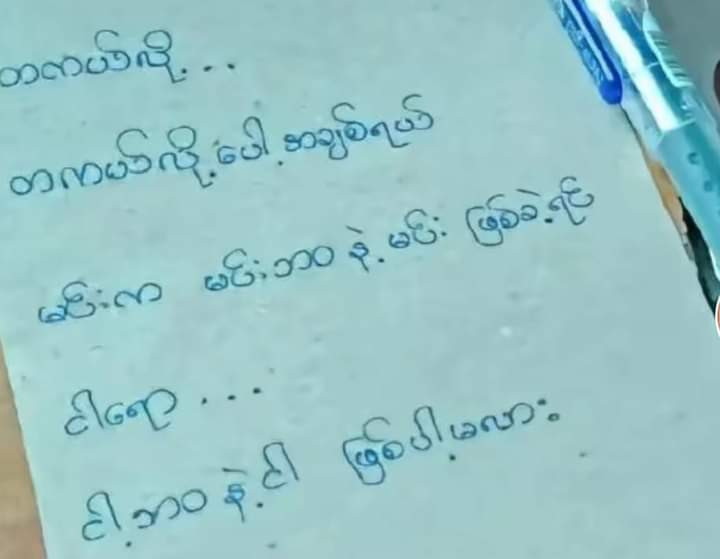 တကယ်လို့...
တကယ်လို့ပေါ့အချစ်ရယ်
မင်းက မင်းဘဝနဲ့မင်း ဖြစ်ခဲ့ရင်
ငါရော...
ငါ့ဘဝနဲ့ငါ ဖြစ်ပါ့မလား